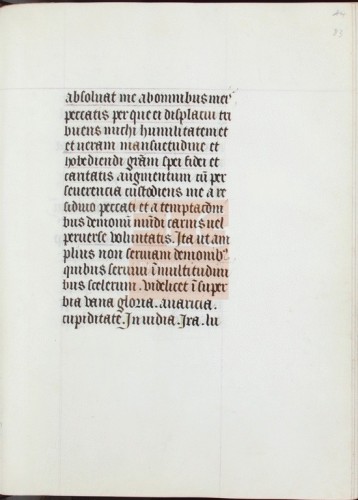 absoluat me ab omnibus meis
peccatis per que ei displacui tri
buens michi humilitatem et
et ueram mansuetudine et
hobediendi grãm spei fidei et
caritatis augmentum cũ per
seuerencia custodiens me a re
siduo peccati et a temptacõni
bus demonũ mũdi carnis uel
peruerse voluntatis. Ita ut am
plius non seruiam demonibꝰ
quibus seruiui ĩ multitudini
bus scelerum. videlicet ĩ super
bia vana gloria. auaricia.
cupiditate. Jnuidia. Jra. lu